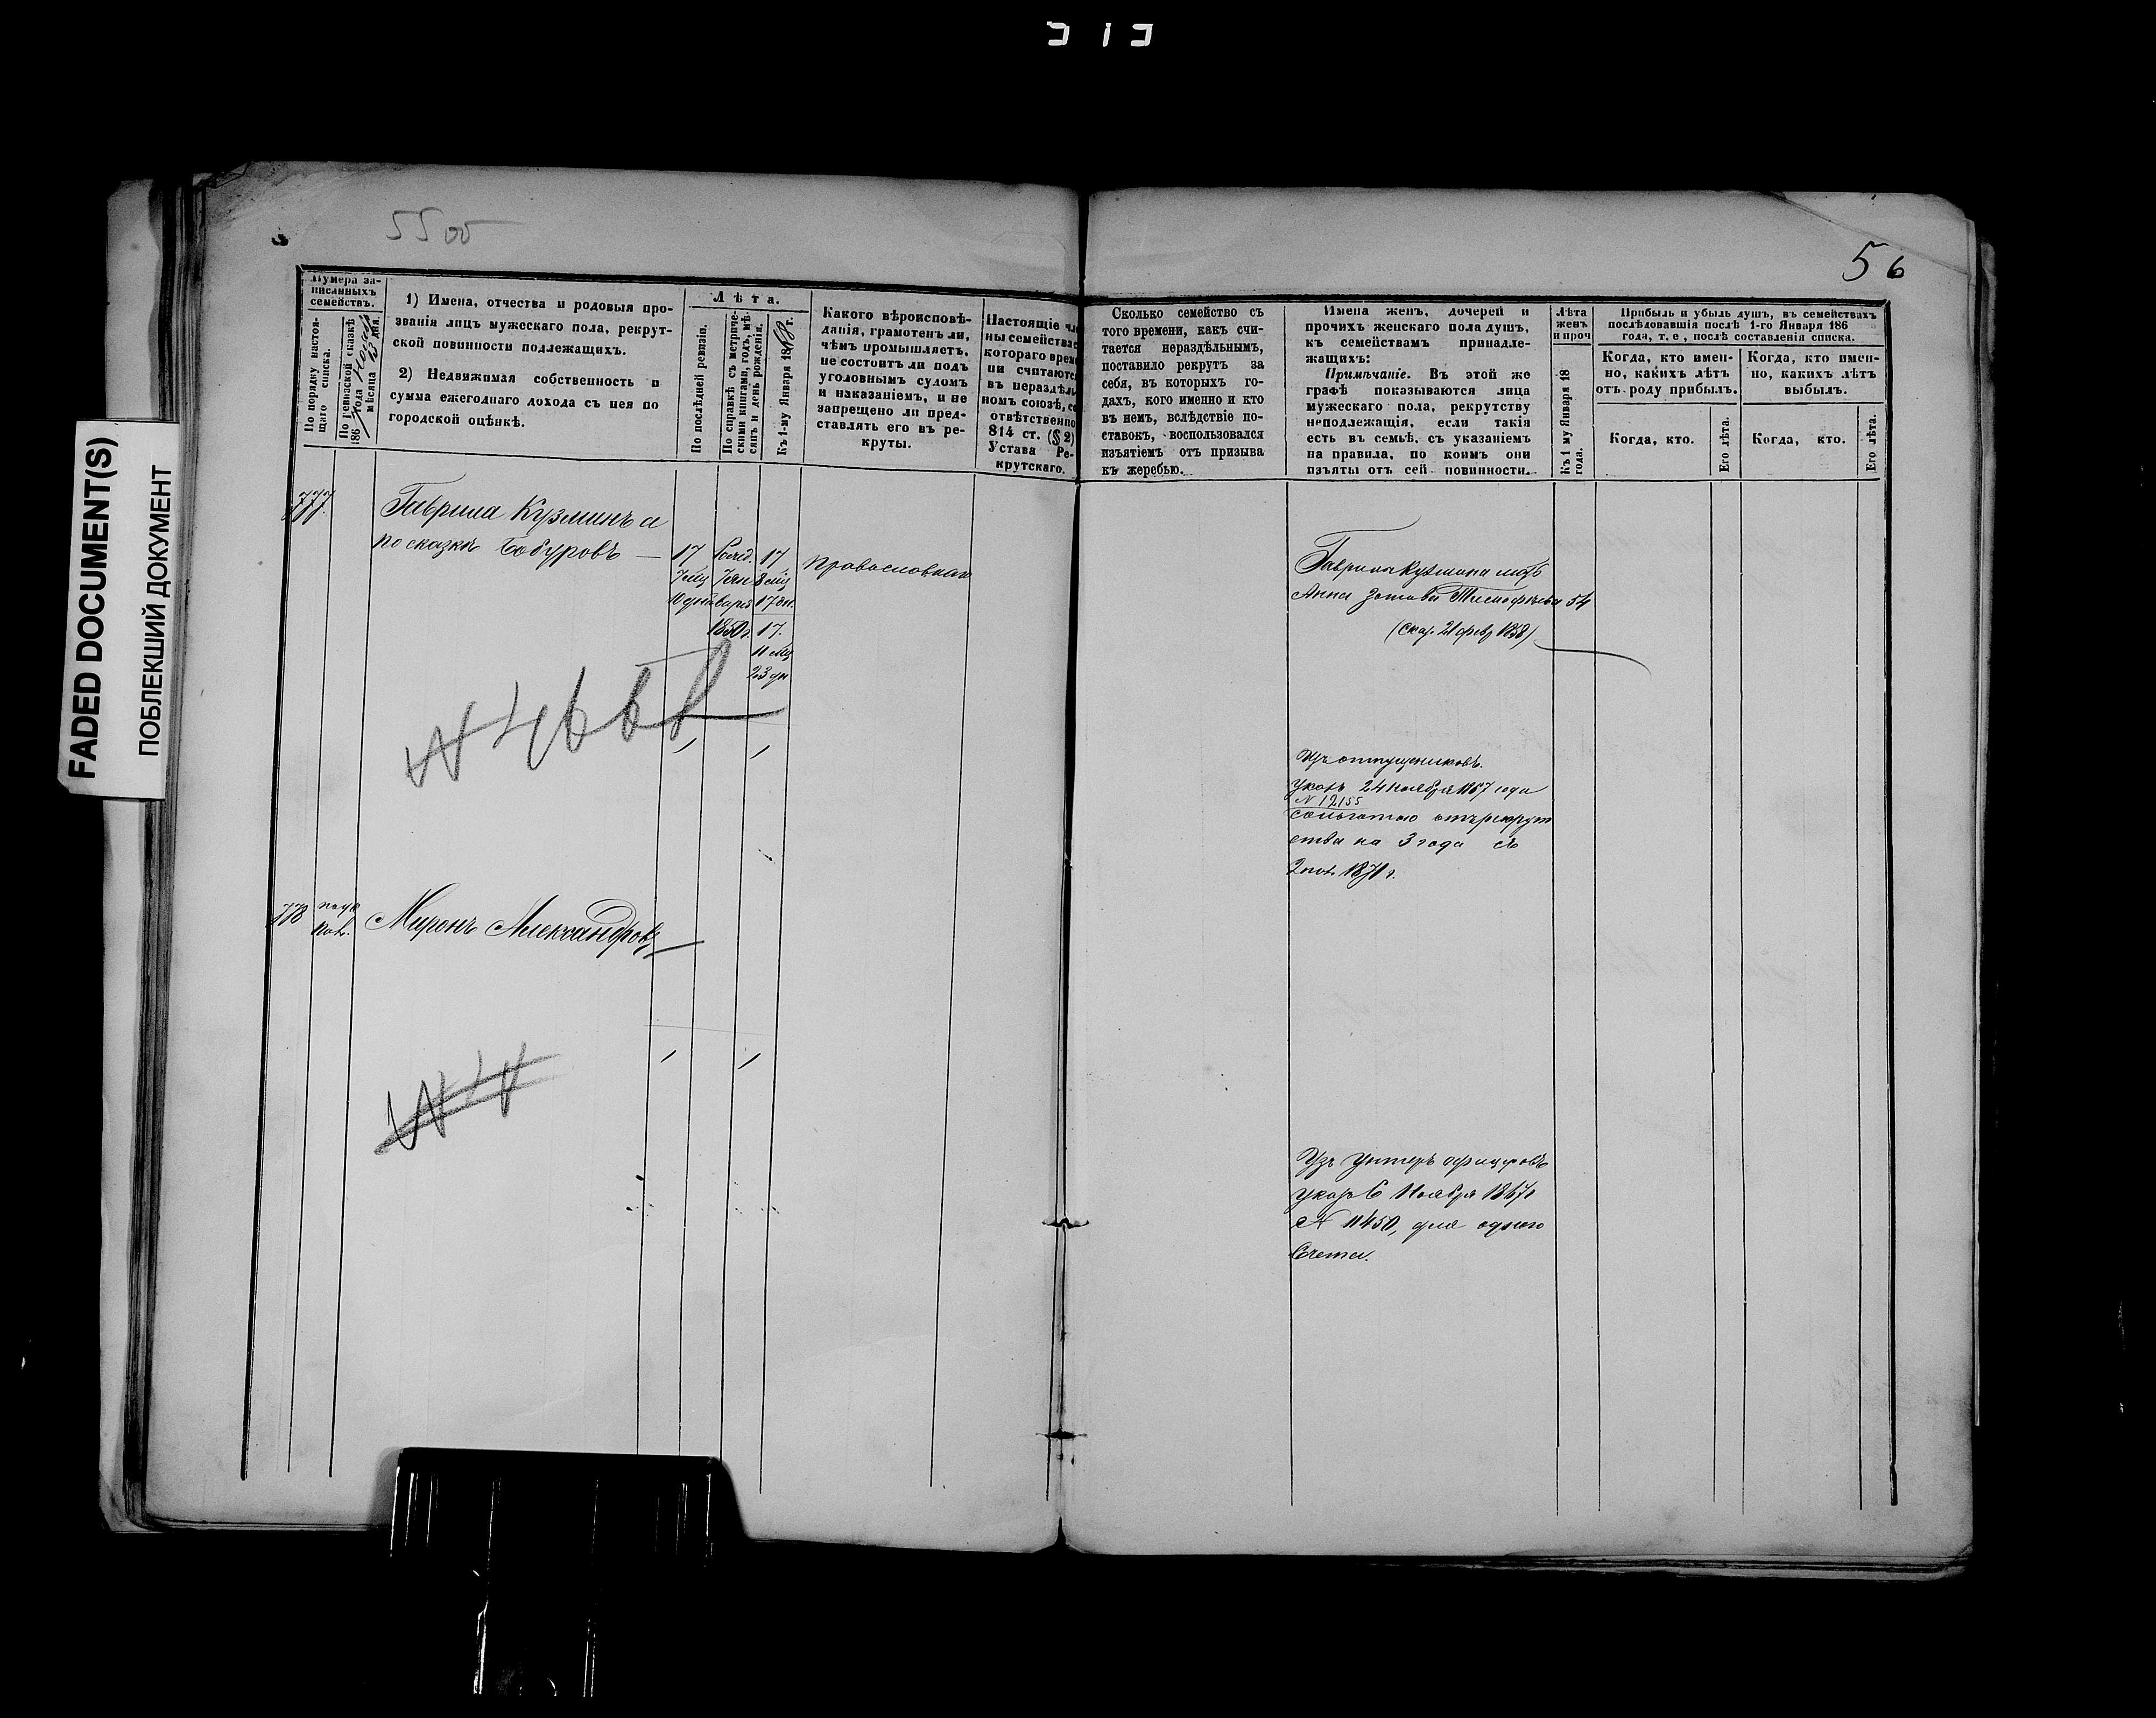 313
FADED DOCUMENT(S)
ПОБЛЕКШИЙ ДОКУМЕНТ
5500
56
Нумера за-
писанныхъ
семействъ.
По порядку настоя-
щаго списка.
По ревизской сказкѣ
186 года
мѣсяца 13 дня.
1) Имена, отчества и родовыя про-
званія лицъ мужескаго пола, рекрут-
ской повинности подлежащихъ.
2) Недвижимая собственность и
сумма ежегоднаго дохода съ нея по
городской оцѣнкѣ.
Лѣта.
По послѣдней ревизіи.
По справкѣ съ метриче-
скими книгами, годъ, мѣ-
сяцъ и день рожденія.
Къ 1-му Января 1868 г.
Какого вѣроисповѣ-
данія, грамотенъ ли,
чѣмъ промышляетъ,
не состоитъ ли подъ
уголовнымъ судомъ
и наказаніемъ, и не
запрещено ли пред-
ставлять его въ ре-
круты.
Настоящіе чле
ны семейства с
котораго време
ни считаются
въ нераздѣль
номъ союзѣ, со
отвѣтственно
814 ст. (§ 2)
Устава Ре-
крутскаго.
Сколько семейство съ
того времени, какъ счи-
тается нераздѣльнымъ,
поставило рекрутъ за
себя, въ которыхъ го-
дахъ, кого именно и кто
въ немъ, вслѣдствіе по-
ставокъ, воспользовался
изъятіемъ отъ призыва
къ жеребью.
Имена женъ, дочерей и
прочихъ женскаго пола душъ,
къ семействамъ принадле-
жащихъ:
Примѣчаніе. Въ этой же
графѣ показываются лица
мужескаго пола, рекрутству
неподлежащія, если такія
есть въ семьѣ, съ указаніемъ
на правила, по коимъ они
изъяты отъ сей повинности.
Лѣта
женъ
и проч
Къ 1 му Января 18
года.
Прибыль и убыль душъ, въ семействахъ
послѣдовавшія послѣ 1-го Января 186
года, т. е., послѣ составленія списка.
Когда, кто имен-
но, какихъ лѣтъ
отъ роду прибылъ.
Когда, кто имен-
но, какихъ лѣтъ
выбылъ.
Когда, кто.
Его лѣта.
Когда, кто.
Его лѣта.
777.
Гаврила Кузминъ а
по сказкѣ Бабуровъ —
17
7 мц
10 дн
Янваpя
1850 г.
17
8 мц
17 дн.
17.
11 мц
23 дн
Православнаго
Гаврилы Кузмина мать
Анна Зотова Тимофѣева 54
(Сказ. 21 февр 1858)
Изъ отпущениковъ.
Указъ 24 ноября 1867 года
N 12155
съ льготою отъ рекрут
ства на 3 года съ
1871 г.
778
Миронъ Александровъ
Изъ Унтеръ офицеровъ
Указъ 6 Ноября 1867 г
N 11450, для одного
Счета.